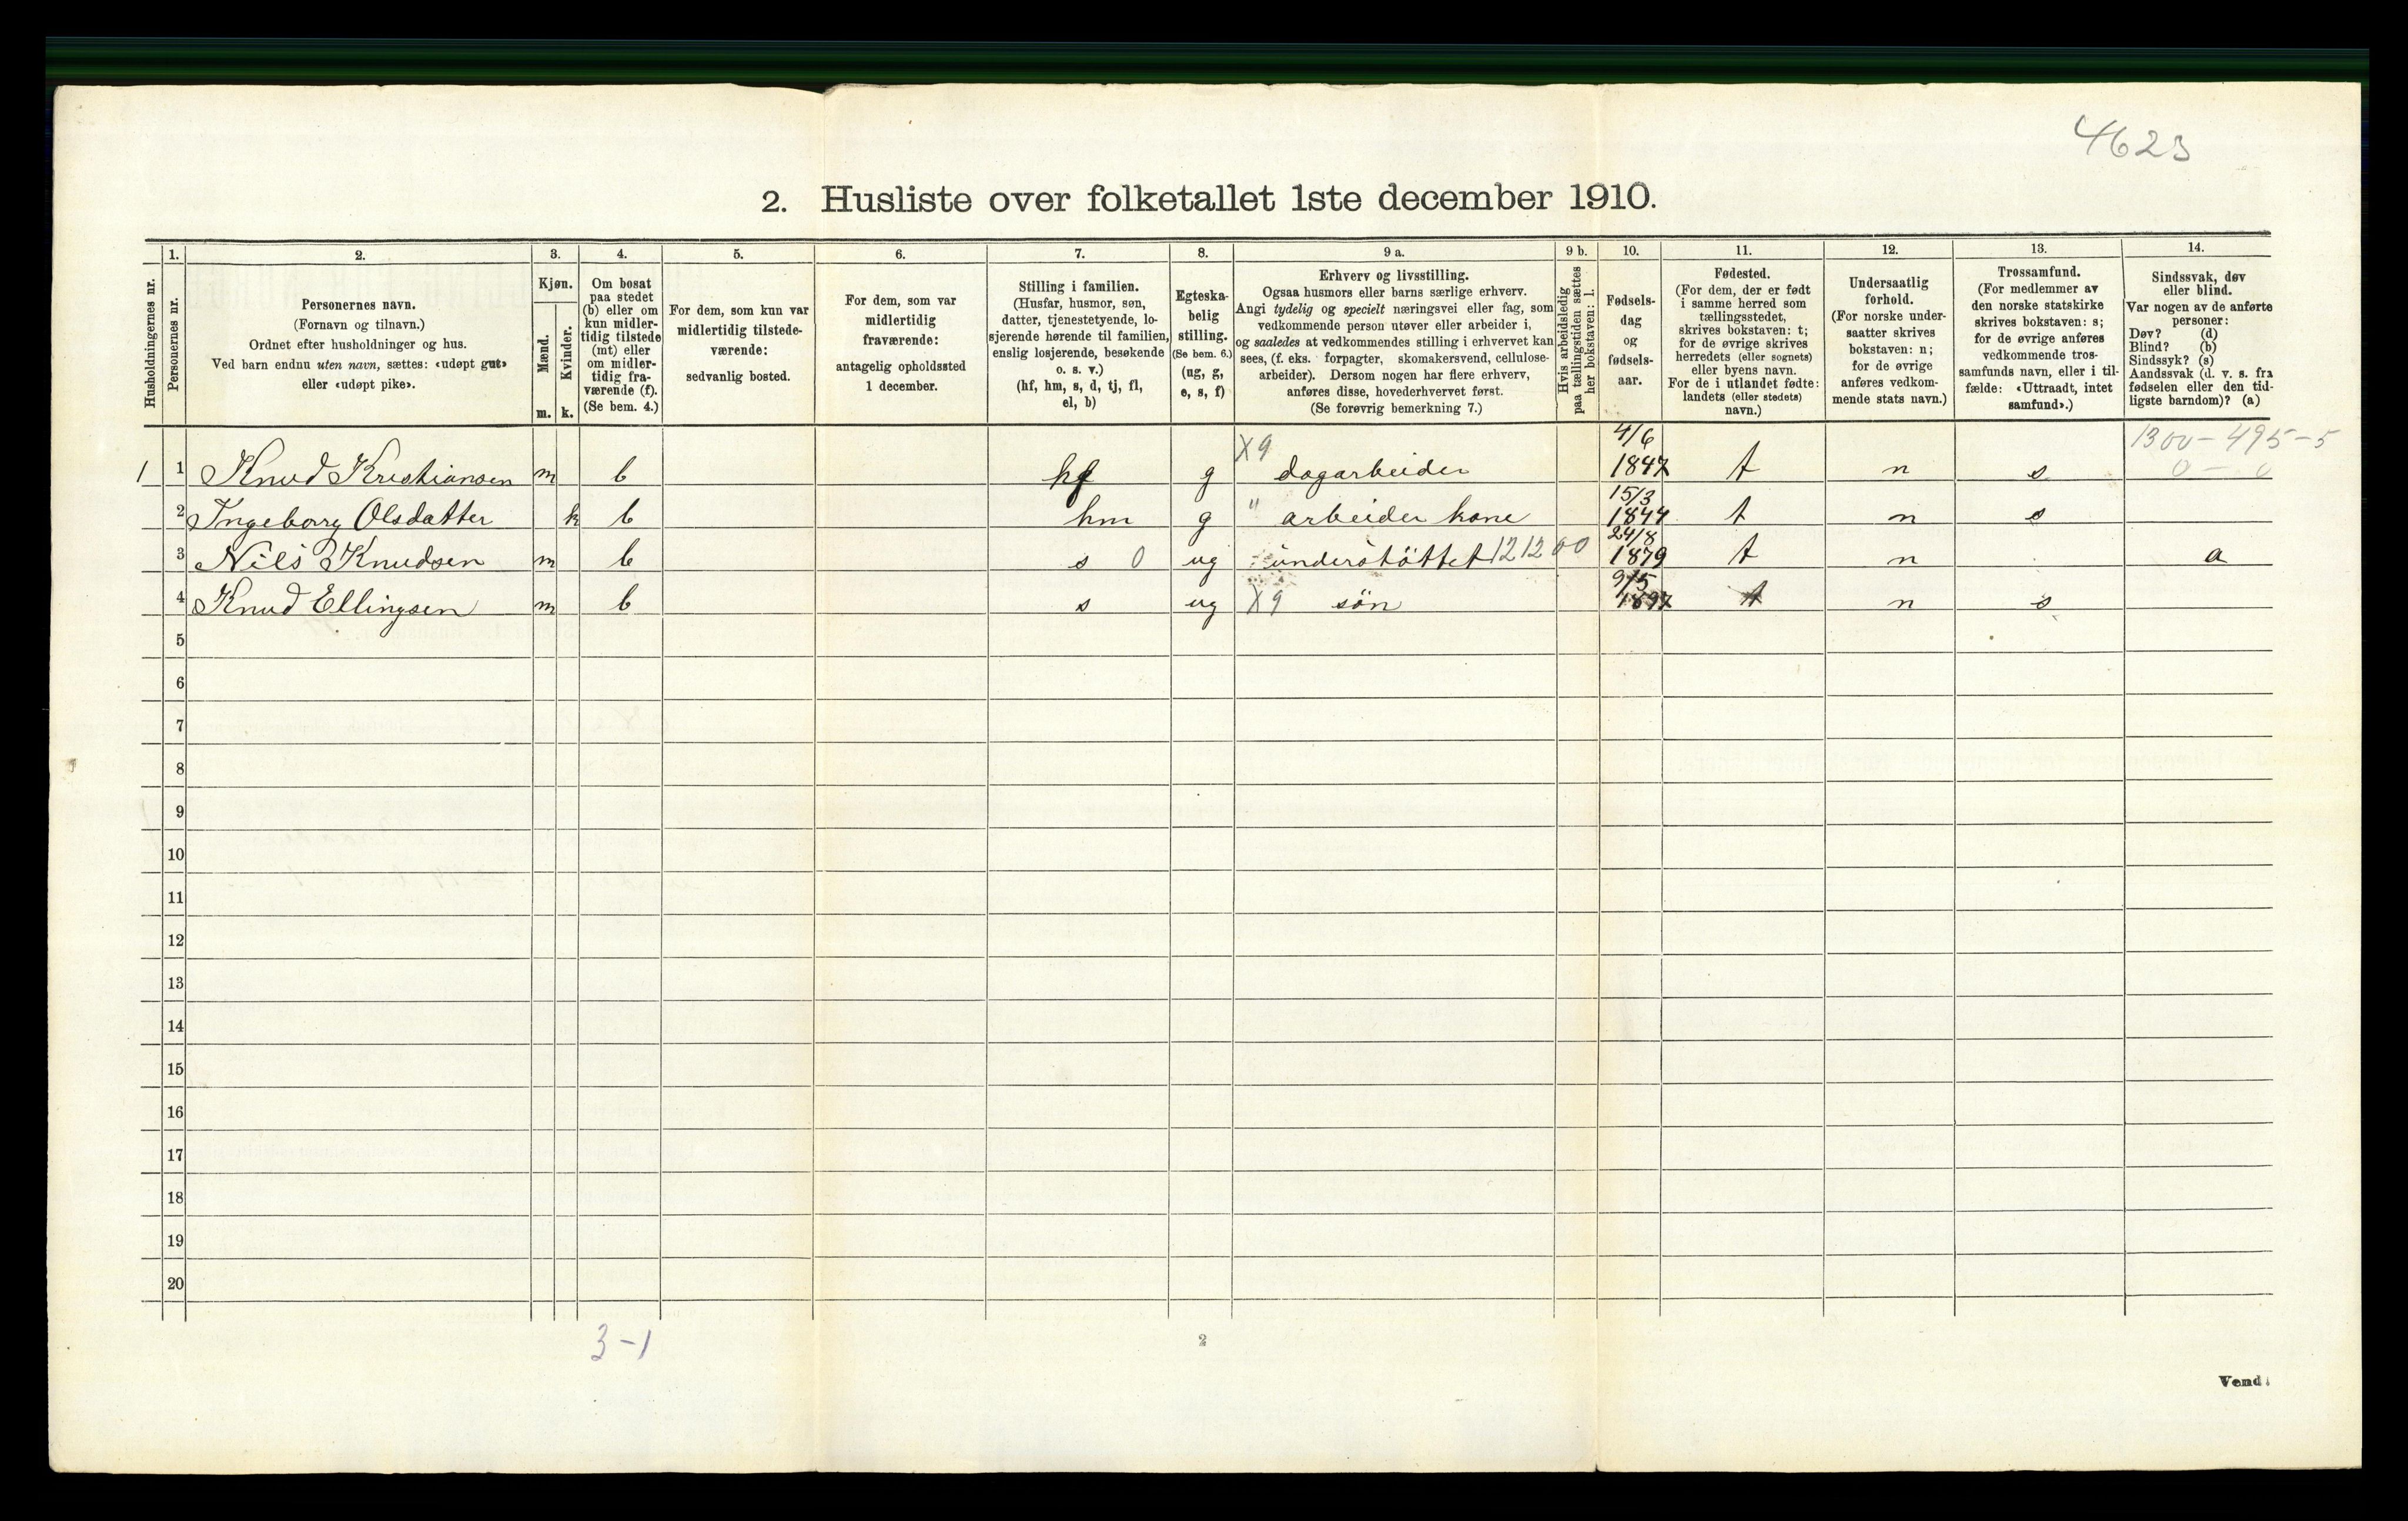 4623
2. Husliste over folketallet 1ste december 1910.
Husholdningernes nr.
1. Personernes nr.
2. Personernes navn.
(Fornavn og tilnavn.)
Ordnet efter husholdninger og hus.
Ved barn endnu uten navn, sættes: «udøpt gut»
eller «udøpt pike».
3. Kjøn.
Mænd. m.
Kvinder. k.
4. Om bosat
paa stedet
(b) eller om
kun midler-
tidig tilstede
(mt) eller
om midler-
tidig fra-
værende (f).
(Se bem. 4.)
5. For dem, som kun var
midlertidig tilstede-
værende:
sedvanlig bosted.
6. For dem, som var
midlertidig
fraværende:
antagelig opholdssted
1 december.
7. Stilling i familien.
(Husfar, husmor, søn,
datter, tjenestetyende, lo-
sjerende hørende til familien,
enslig losjerende, besøkende
o. s. v.)
(hf, hm, s, d, tj, fl,
el, b)
8. Egteska-
belig
stilling.
(Se bem. 6.)
(ug, g,
e, s, f)
9 a. Erhverv og livsstilling.
Ogsaa husmors eller barns særlige erhverv.
Angi tydelig og specielt næringsvei eller fag, som
vedkommende person utøver eller arbeider i,
og saaledes at vedkommendes stilling i erhvervet kan
sees, (f. eks. forpagter, skomakersvend, cellulose-
arbeider). Dersom nogen har flere erhverv,
anføres disse, hovederhvervet først.
(Se forøvrig bemerkning 7.)
9 b. Hvis arbeidsledig
paa tællingstiden sættes
her bokstaven: l.
10. Fødsels-
dag
og
fødsels-
aar.
11. Fødested.
(For dem, der er født
i samme herred som
tællingsstedet,
skrives bokstaven: t;
for de øvrige skrives
herredets (eller sognets)
eller byens navn.
For de i utlandet fødte:
landets (eller stedets)
navn.)
12. Undersaatlig
forhold.
(For norske under-
saatter skrives
bokstaven: n;
for de øvrige
anføres vedkom-
mende stats navn.)
13. Trossamfund.
(For medlemmer av
den norske statskirke
skrives bokstaven: s;
for de øvrige anføres
vedkommende tros-
samfunds navn, eller i til-
fælde: «Uttraadt, intet
samfund».)
14. Sindssvak, døv
eller blind.
Var nogen av de anførte
personer:
Døv? (d)
Blind? (b)
Sindssyk? (s)
Aandssvak (d. v. s. fra
fødselen eller den tid-
ligste barndom)? (a)
X9 4/6 1300-495-5
1 1 Knud Kristiansen m b hf g dagarbeider 1847 t n s 0-0
15/3
2 Ingeborg Olsdatter k b hm g " arbeider kone 1844 t n s
24/8
3 Nils Knudsen m b s 0 ug understöttet 121200 1879 t n a
9/5
4 Knud Ellingsen m b s ug X9 sön 1897 t n s
5
6
7
8
9
10
11
12
13
14
15
16
17
18
19
20
3-1
2
Vend!